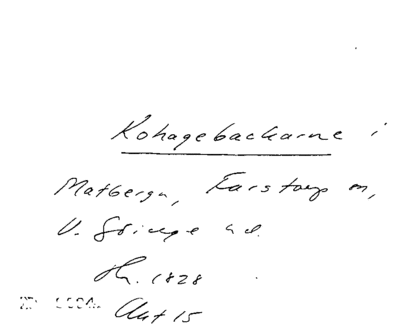 Kohagebackarne i
Matberga, Farstorp sn,
V. Göinge hd.
1828
Akt 15